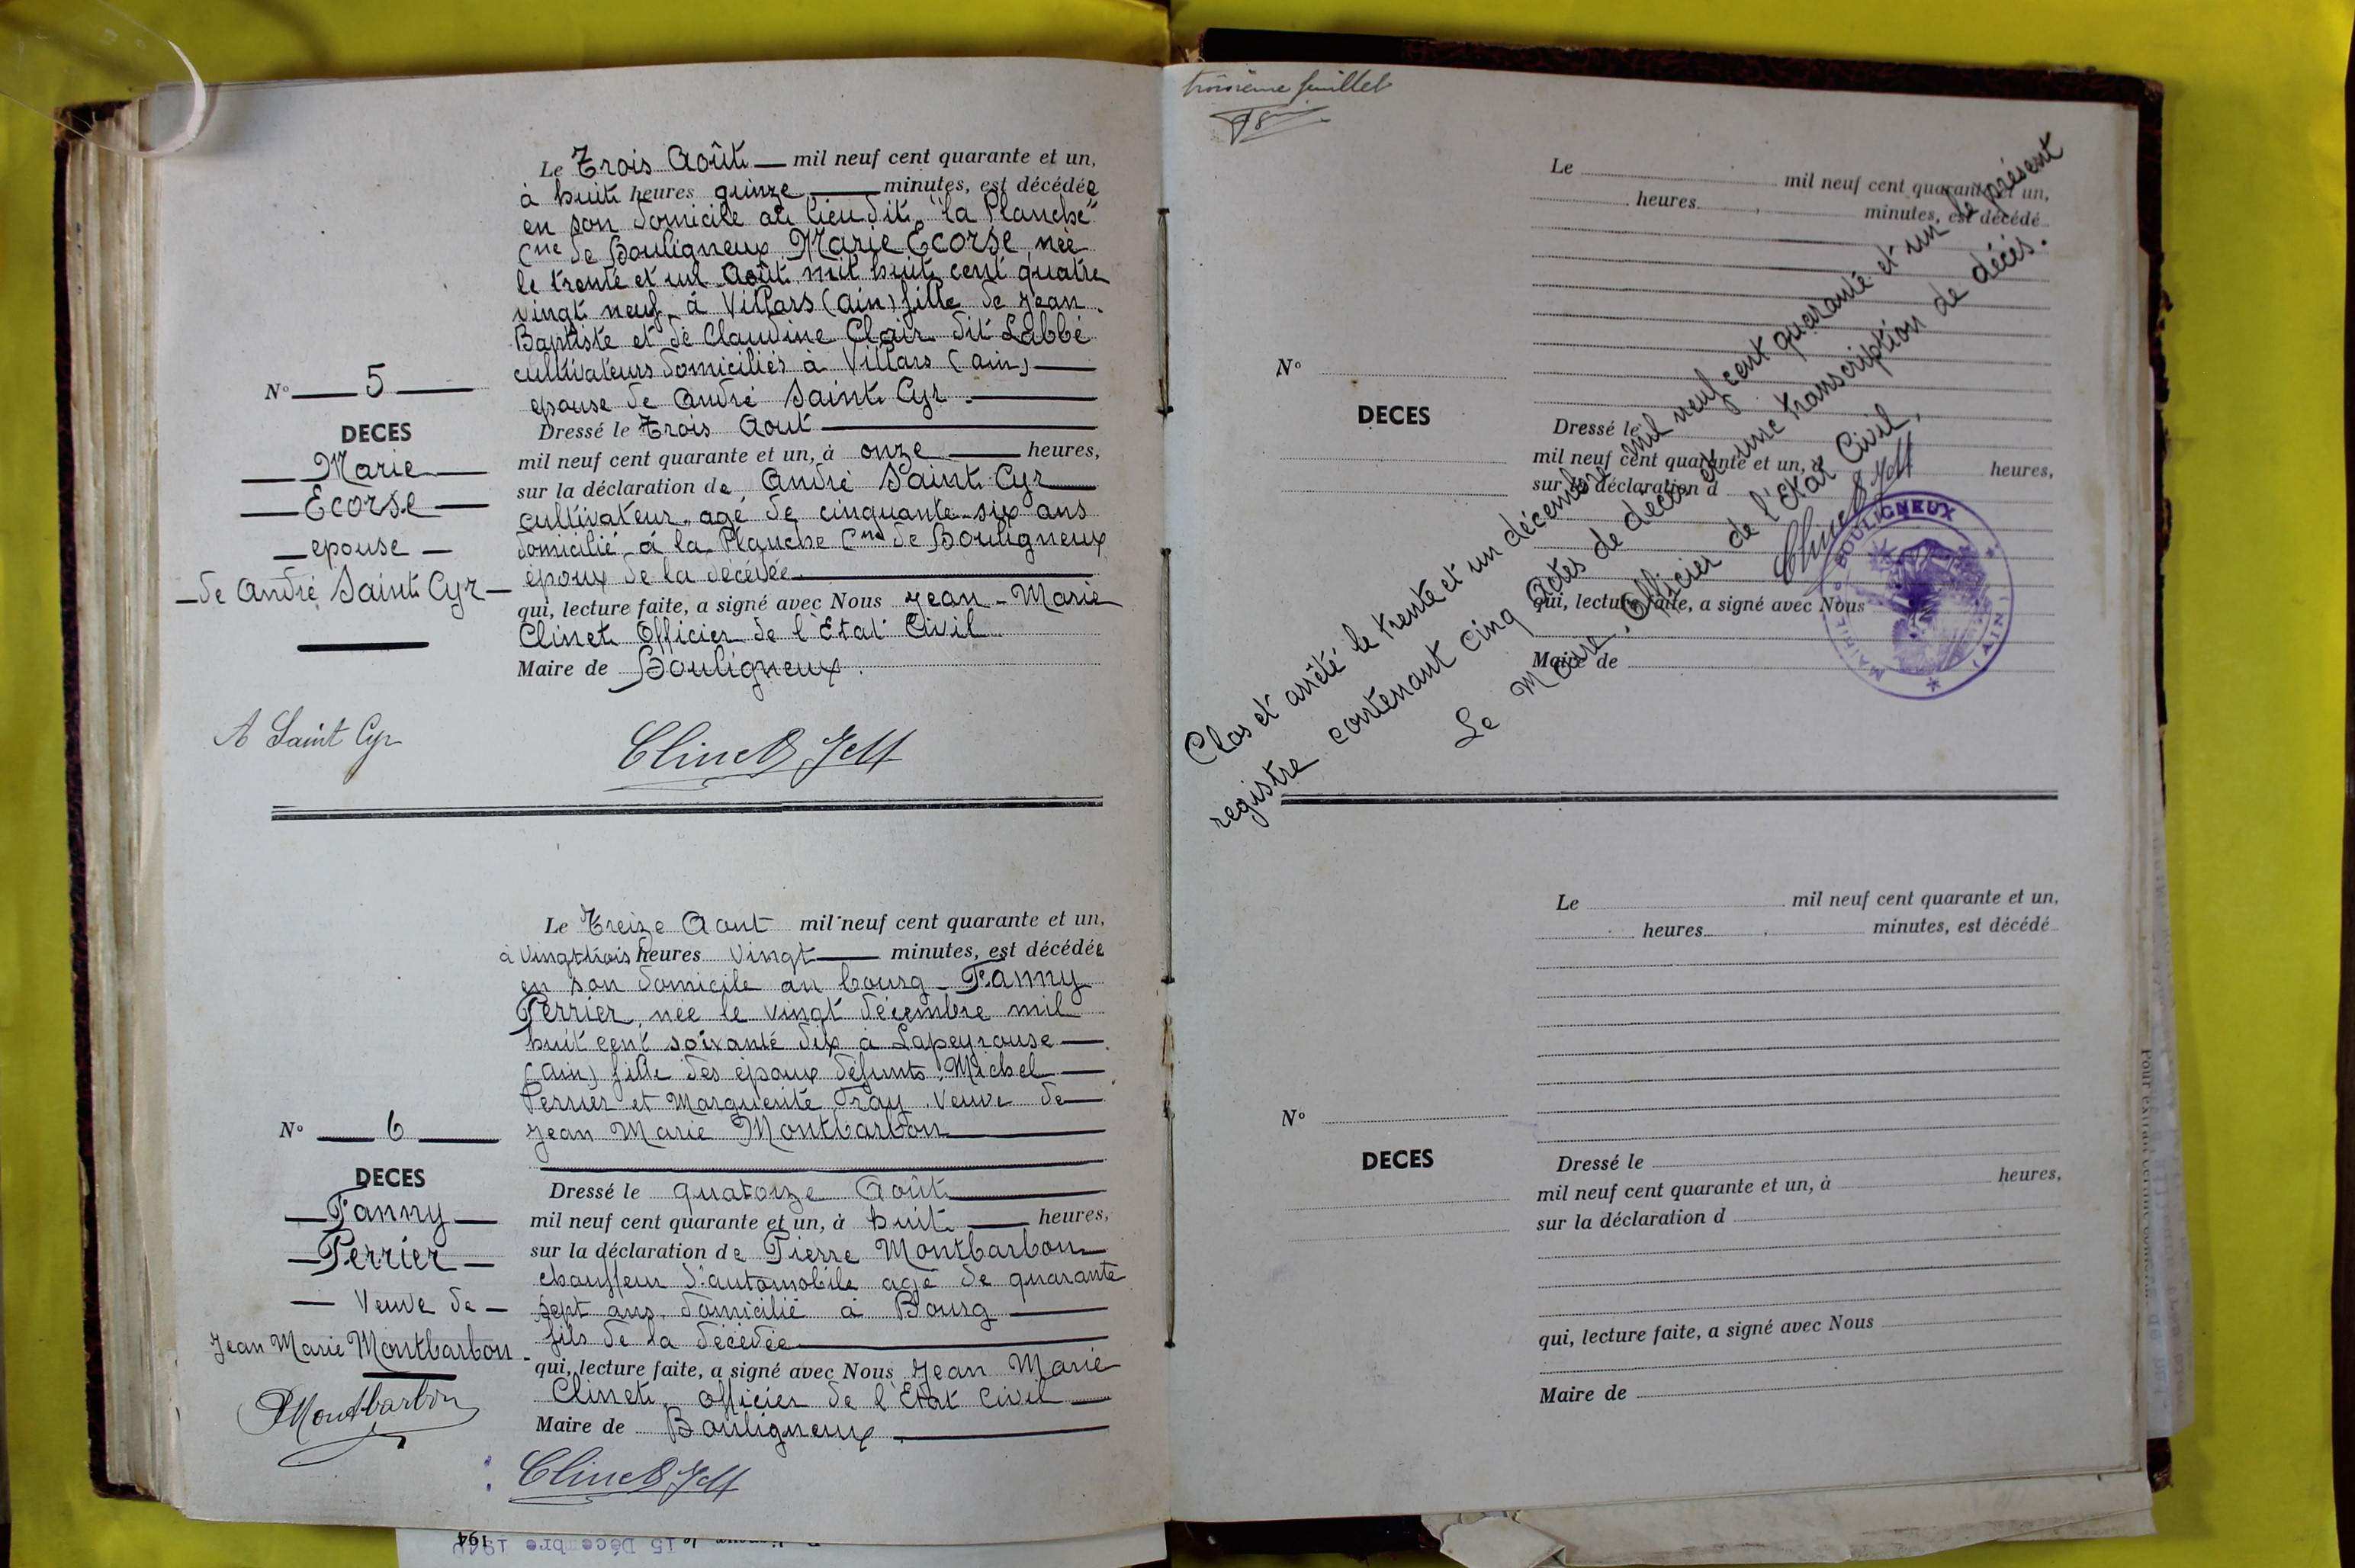 Le Trois Août mil neuf cent quarante et un,
à huit heures quinze minutes, est décédée
en son domicile au lieu dit "la Planche"
Cne de Bouligneux Marie Ecorse née
le trente et un Août mil huit cent quatre
vingt neuf à Villars (Ain) fille de Jean
Baptiste et de Claudine Clair dit Labbé
cultivateurs domiciliés à Villars (Ain)
épouse de André Saint Cyr.
N° 5
DECES
Marie
Ecorse
epouse
de André Saint Cyr
Dressé le Trois Aout
mil neuf cent quarante et un, à onze heures,
sur la déclaration de André Saint Cyr
cultivateur, agé de cinquante six ans
domicilié à la Planche Cne de Bouligneux
époux de la décédée
qui, lecture faite, a signé avec Nous Jean-Marie
Clinet Officier de l'Etat Civil
Maire de Bouligneux.
A Saint Cyr
Clinet JM
Le Treize Aout mil neuf cent quarante et un,
à vingt trois heures vingt minutes, est décédée
en son domicile au bourg Fanny
Perrier, née le vingt décembre mil
huit cent soixante dix à Lapeyrouse
(Ain) fille des époux défunts Michel
Perrier et Marguerite Fray. Veuve de
Jean Marie Montbarbon
N° 6
DECES
Fanny
Perrier
Veuve de
Jean Marie Montbarbon
Dressé le quatorze Août
mil neuf cent quarante et un, à huit heures,
sur la déclaration de Pierre Montbarbon
chauffeur d'automobile agé de quarante
sept ans, domicilié à Bourg
fils de la décédée
qui, lecture faite, a signé avec Nous Jean Marie
Clinet, officier de l'Etat Civil
Maire de Bouligneux.
PMontbarbon
Clinet JM
15 Décembre 194
troisième feuillet
Le mil neuf cent quarante et un,
heures minutes, est décédé
N°
DECES
Dressé le
mil neuf cent quarante et un, à heures,
sur la déclaration d
qui, lecture faite, a signé avec Nous
Maire de
Clos et arrêté le trente et un décembre mil neuf cent quarante et un le présent
registre contenant cinq Actes de décès et une transcription de décès.
Le Maire, Officier de l'Etat Civil,
Clinet JM
MAIRIE DE BOULIGNEUX * (AIN) *
Le mil neuf cent quarante et un,
heures minutes, est décédé
N°
DECES
Dressé le
mil neuf cent quarante et un, à heures,
sur la déclaration d
qui, lecture faite, a signé avec Nous
Maire de